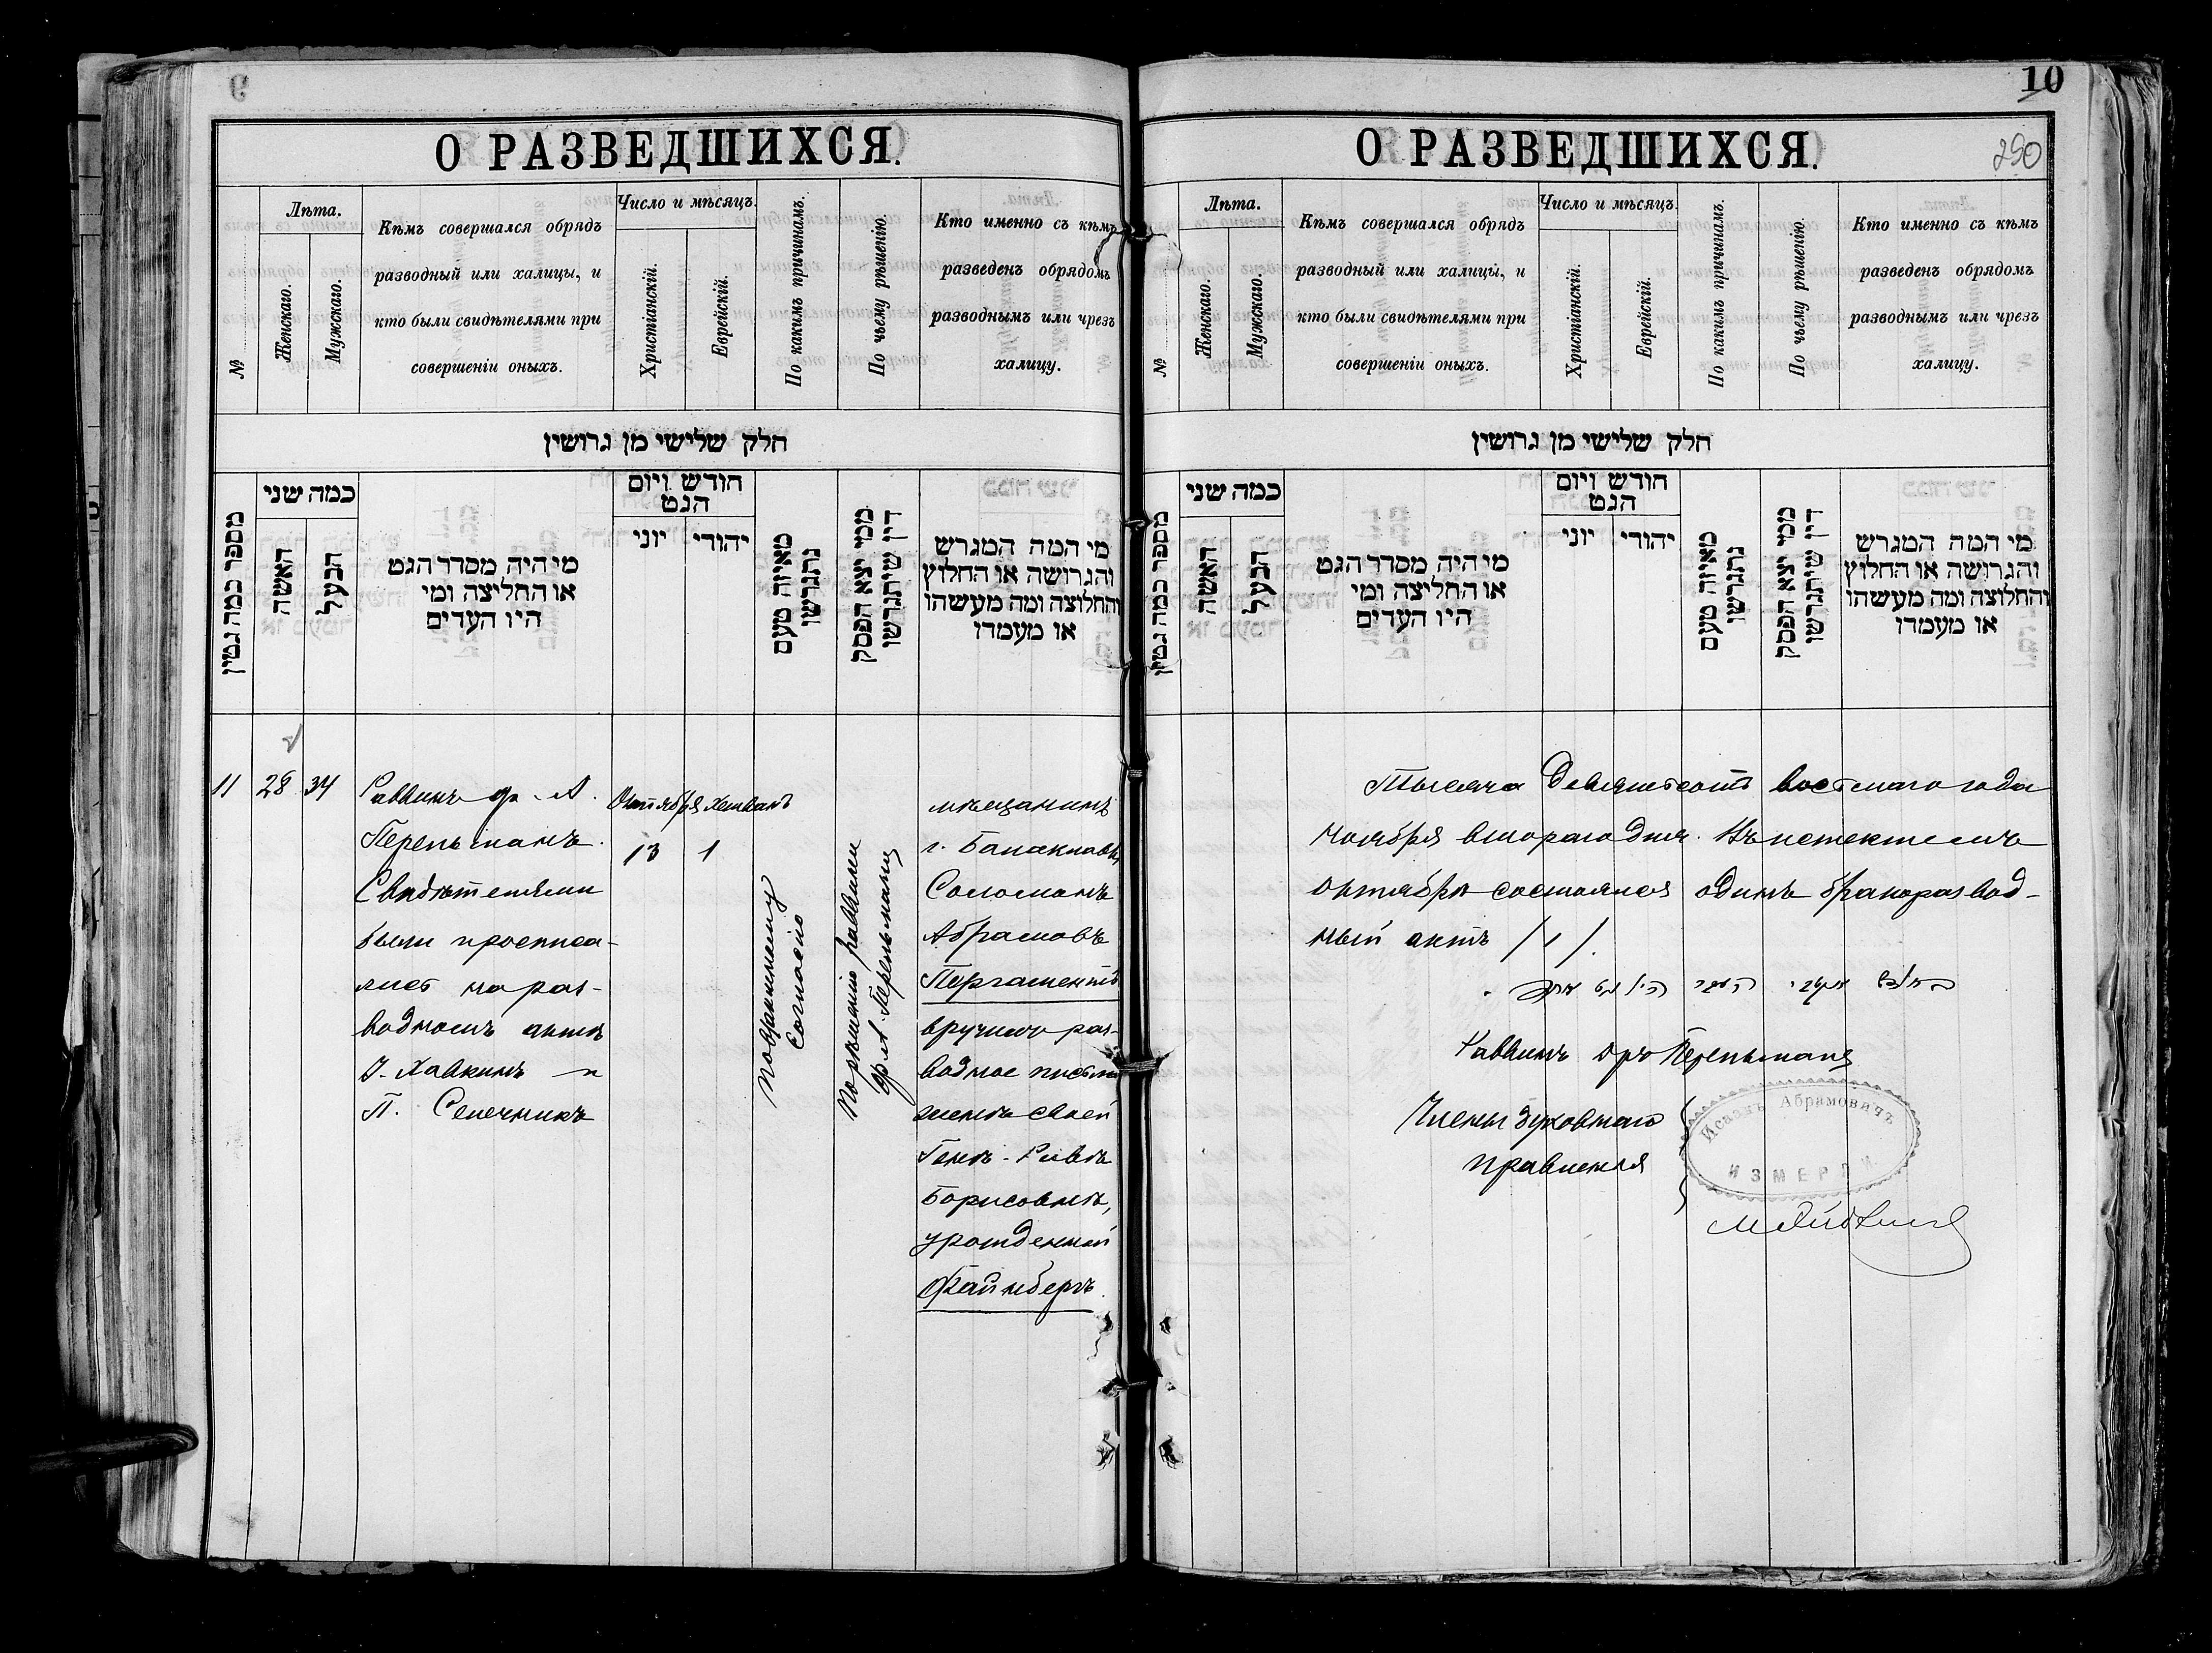 О РАЗВЕДШИХСЯ.
№
Лѣта.
Женскаго.
Мужскаго.
Кѣмъ совершался обрядъ
разводный или халицы, и
кто были свидѣтелями при
совершеніи оныхъ.
Число и мѣсяцъ.
Христіанскій.
Еврейскій.
По какимъ причинамъ.
По чьему рѣшенію.
Кто именно съ кѣмъ
разведенъ обрядомъ
разводнымъ или чрезъ
халицу.
חלק שלישי מן גרושין
מספר כמה גטין
כמה שני
האשה
הבעל
מי היה מסדר הגט
או החליצה ומי
היו העדים
חודש ויום
הגט
יוני
יהודי
מאיזה טעם
נתגרשו
ממי יצא הפסק
דין שיתגרשו
מי המה המגרש
והגרושה או החלוץ
והחלוצה ומה מעשהו
או מעמדו
11
28
34
Раввинъ др. А.
Перельманъ.
Свидѣтелями
были
на раз-
водномъ актѣ
І. Хавкинъ и
П. Сапечникъ
Октября Хешванъ
13 1
По взаимному
согласію
По рѣшенію раввина
др А. Перельмана
мѣщанинъ
г. Балаклавы
Соломонъ
Абрамовъ
Пергаментъ
вручилъ раз-
водное письмо
женѣ своей
Генѣ-Ривѣ
Борисовнѣ,
урожденной
Файнбергъ.
10
250
О РАЗВЕДШИХСЯ.
№
Лѣта.
Женскаго.
Мужскаго.
Кѣмъ совершался обрядъ
разводный или халицы, и
кто были свидѣтелями при
совершеніи оныхъ.
Число и мѣсяцъ.
Христіанскій.
Еврейскій.
По какимъ причинамъ.
По чьему рѣшенію.
Кто именно съ кѣмъ
разведенъ обрядомъ
разводнымъ или чрезъ
халицу.
חלק שלישי מן גרושין
מספר כמה גטין
כמה שני
האשה
הבעל
מי היה מסדר הגט
או החליצה ומי
היו העדים
חודש ויום
הגט
יוני
יהודי
מאיזה טעם
נתגרשו
ממי יצא הפסק
דין שיתגרשו
מי המה המגרש
והגרושה או החלוץ
והחלוצה ומה מעשהו
או מעמדו
Тысяча девятьсотъ восьмаго года
ноября втораго дня. Въ истекшемъ
октябрѣ состоялся одинъ бракоразвод-
ный актъ /1/.
Раввинъ дръ Перельманъ
Члены духовнаго
правленія
Исаакъ Абрамовичъ
ИЗМЕРЛИ